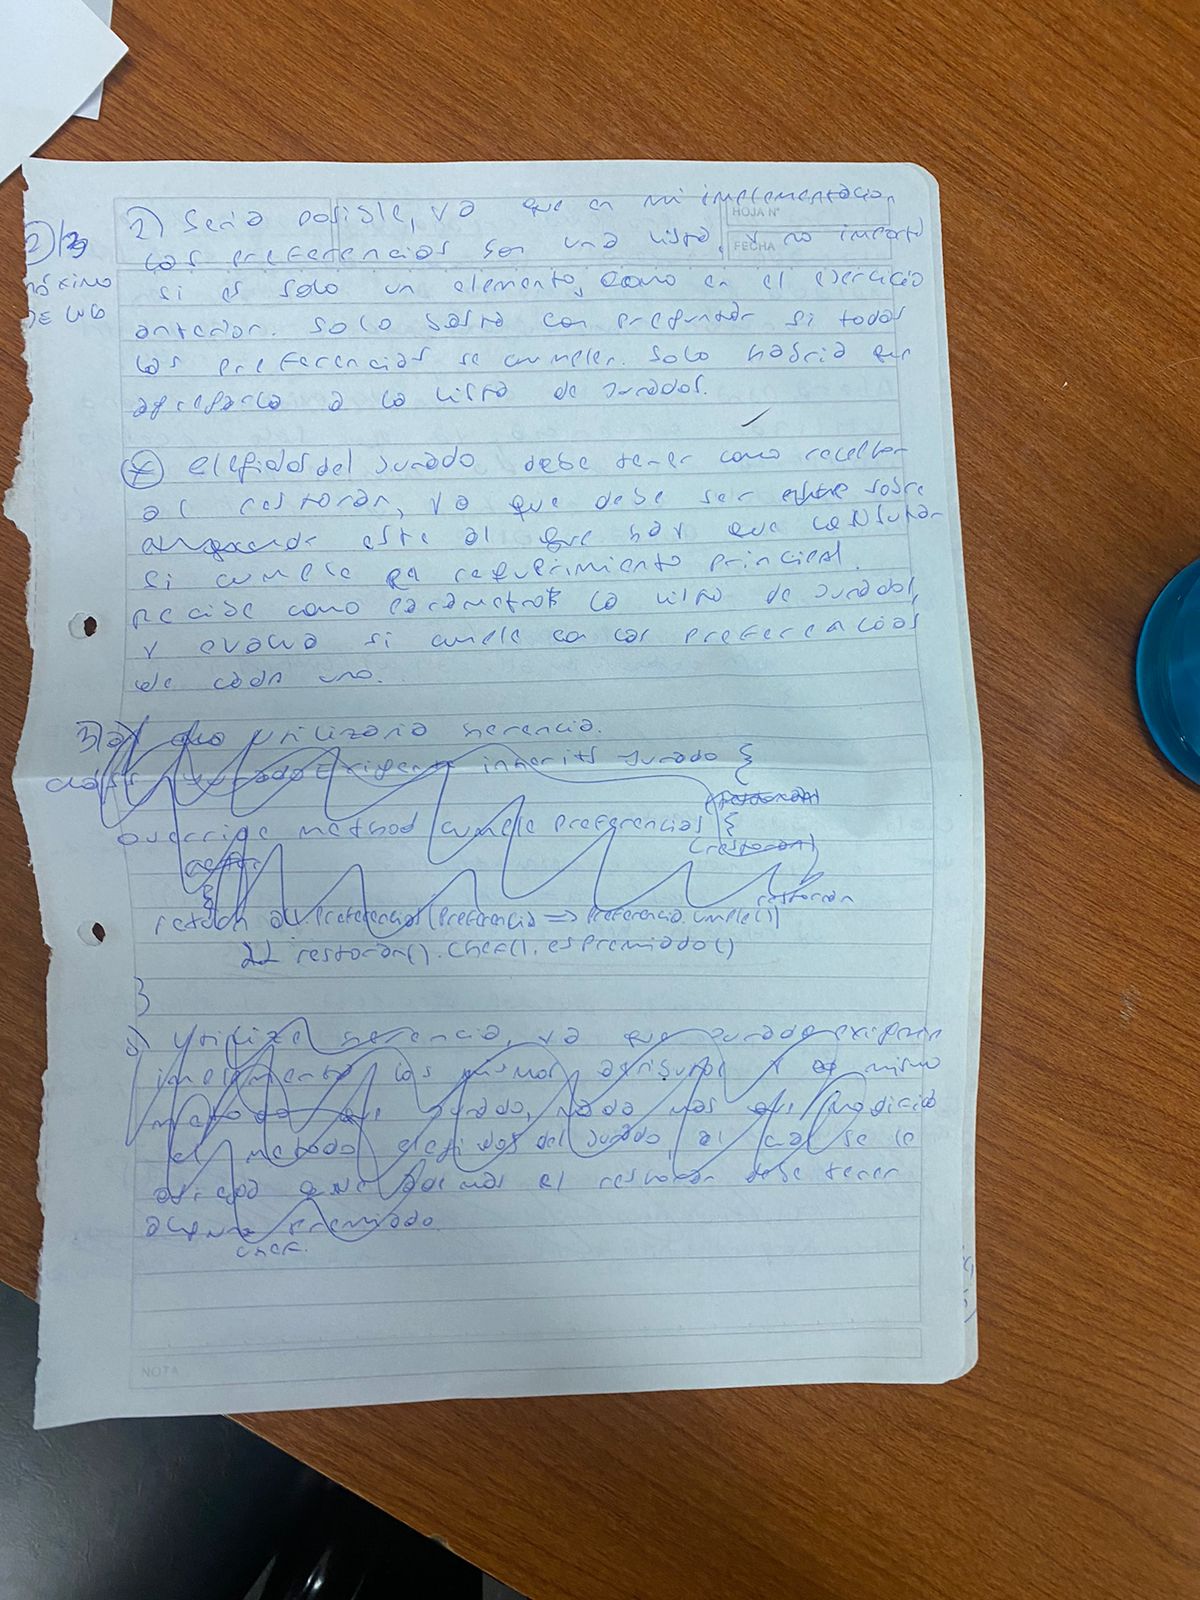 2) Seria posible, ya que en mi implementacion
HOJA Nº
las preferencias son una lista, y no importa
FECHA
2/3
Máximo
De Lugo
si es solo un elemento, como en el ejercicio
anterior. Solo basta con preguntar si todas
las preferencias se cumplen. Solo habria que
agregarla a la lista de Jurados.
* elegidosdel Jurado debe tener como receptor
al restoran, ya que debe ser sobre
este al que hay que consultar
si cumple el requerimiento principal.
Recibe como parametro la lista de Jurados,
y evalua si cumple con las preferencias
de cada uno.
3)a) utilizaria herencia.
class JuradoExigente inherits Jurado {
override method cumplePreferencias {
(restoran)
}
restoran
return all.Preferencias(Preferencia => Preferencia.cumple()
&& restoran().chef().esPremiado()
}
b) Utilize herencia, ya que Jurado exigente
implementa los mismos atributos y mismo
metodo que Jurado, nada mas que modifica
el metodo elegidos del Jurado, al cual se le
agrega que ademas el restoran debe tener
algun premiado.
chef.
NOTA